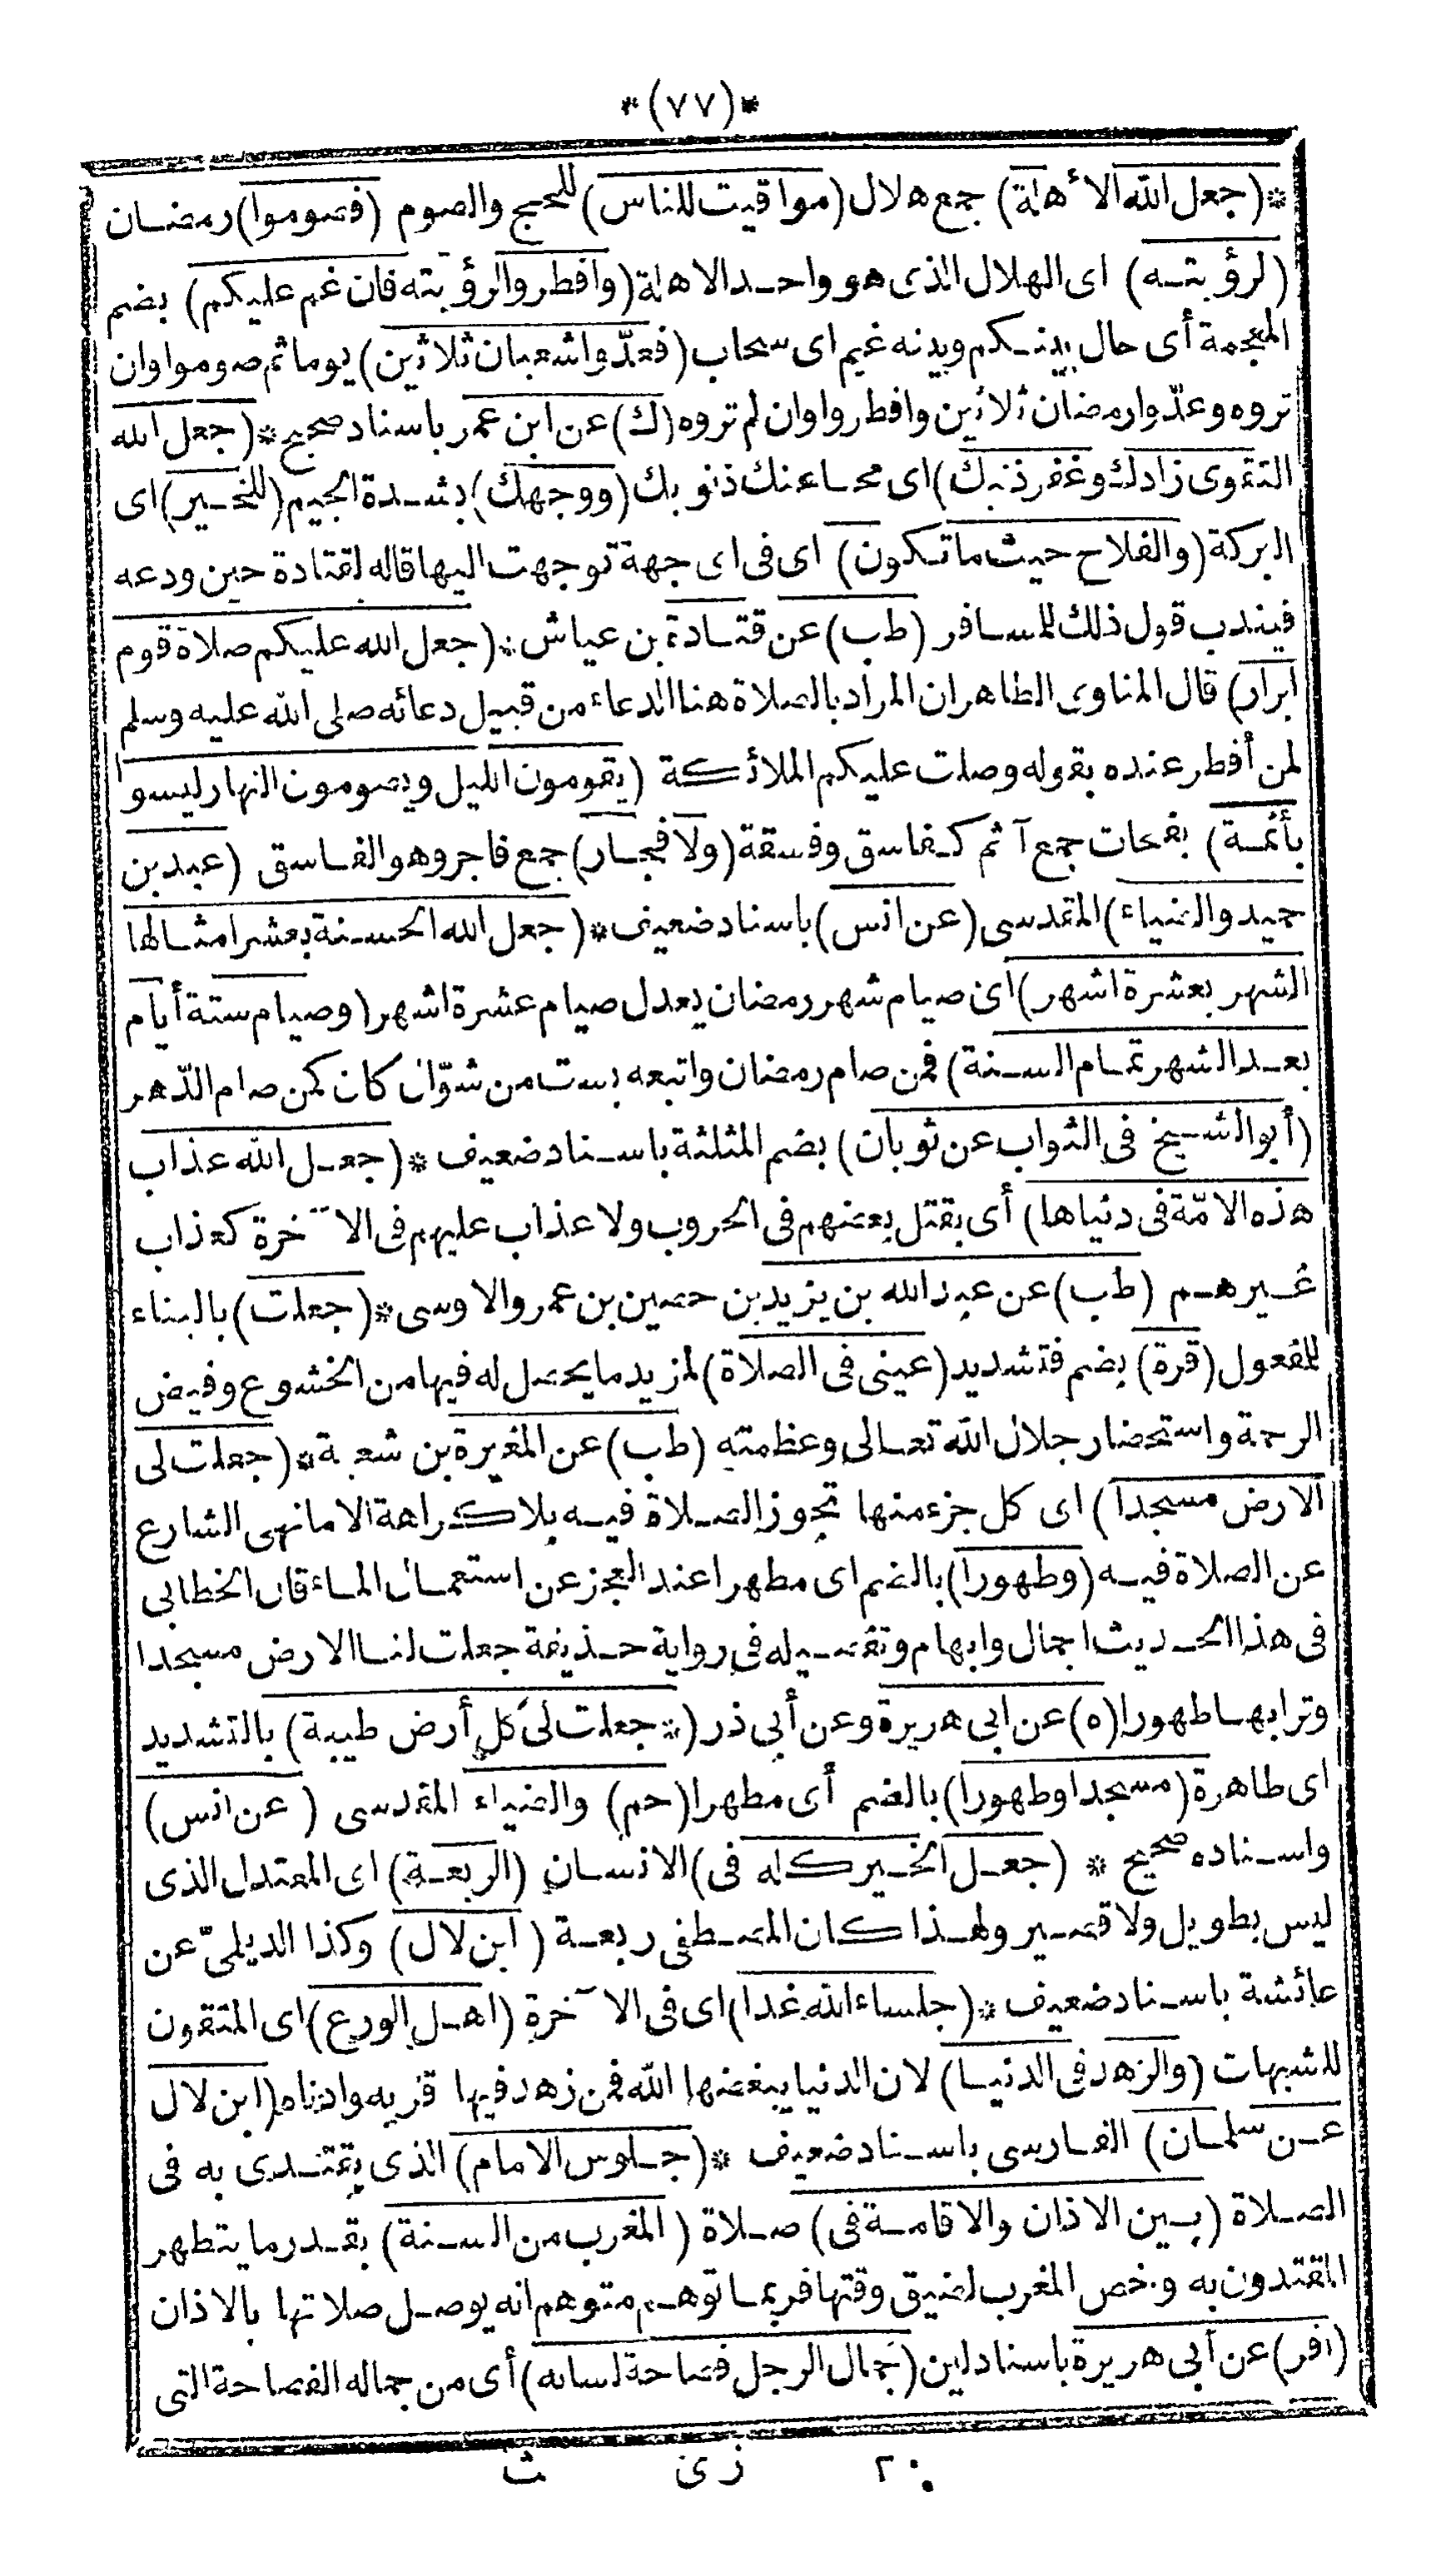 *(٧٧)*
*(جعل الله الأهلة) جمع هلال (مواقيت للناس) للحج والصوم (فصوموا) رمضان
(لرؤيته) اى الهلال الذى هو واحد الاهلة (وافطروا لرؤيته فان غم عليكم) بضم
المعجمة أى حال بينكم وبينه غيم اى سحاب (فعدّوا شعبان ثلاثين) يوما ثم صوموا وان
تروه وعدّوا رمضان ثلاثين وافطروا وان لم تروه (ك) عن ابن عمر باسناد صحيح *(جعل الله
التقوى زادك وغفر ذنبك) اى محا عنك ذنوبك (ووجهك) بشدة الجيم (للخير) اى
البركة (والفلاح حيث ما تكون) اى فى اى جهة توجهت اليها قاله لقتادة حين ودعه
فيندب قول ذلك للمسافر (طب) عن قتادة بن عياش *(جعل الله عليكم صلاة قوم
ابرار) قال المناوى الظاهر ان المراد بالصلاة هنا الدعاء من قبيل دعائه صلى الله عليه وسلم
لمن أفطر عنده بقوله وصلت عليكم الملائكة (يقومون الليل ويصومون النهار ليسوا
بأثمة) بفتحات جمع آثم كفاسق وفسقة (ولا فجار) جمع فاجر وهو الفاسق (عبد بن
حميد والضياء) المقدسى (عن انس) باسناد ضعيف *(جعل الله الحسنة بعشر امثالها
الشهر بعشرة اشهر) اى صيام شهر رمضان يعدل صيام عشرة اشهر (وصيام ستة أيام
بعد الشهر تمام السنة) فمن صام رمضان واتبعه بست من شوّال كان كمن صام الدّهر
(أبو الشيخ فى الثواب عن ثوبان) بضم المثلثة باسناد ضعيف *(جعل الله عذاب
هذه الامّة فى دنياها) أى بقتل بعضهم فى الحروب ولا عذاب عليهم فى الآخرة كعذاب
غيرهم (طب) عن عبد الله بن يزيد بن حصين بن عمرو الاوسى *(جعلت) بالبناء
للمفعول (قرة) بضم فتشديد (عينى فى الصلاة) لمزيد ما يحصل له فيها من الخشوع وفيض
الرحمة واستحضار جلال الله تعالى وعظمته (طب) عن المغيرة بن شعبة *(جعلت لى
الارض مسجدا) اى كل جزء منها تجوز الصلاة فيه بلا كراهة الا ما نهى الشارع
عن الصلاة فيه (وطهورا) بالضم اى مطهرا عند العجز عن استعمال الماء قال الخطابى
فى هذا الحديث اجمال وابهام وتفصيله فى رواية حذيفة جعلت لنا الارض مسجدا
وترابها طهورا (ه) عن ابى هريرة وعن أبى ذر (*جعلت لى كل أرض طيبة) بالتشديد
اى طاهرة (مسجدا وطهورا) بالضم أى مطهرا (حم) والضياء المقدسى (عن انس)
واسناده صحيح * (جعل الخير كله فى) الانسان (الربعة) اى المعتدل الذى
ليس بطويل ولا قصير ولهذا كان المصطفى ربعة (ابن لال) وكذا الديلمىّ عن
عائشة باسناد ضعيف *(جلساء الله غدا) اى فى الآخرة (اهل الورع) اى المتقون
للشبهات (والزهد فى الدنيا) لان الدنيا يبغضها الله فمن زهد فيها قربه وادناه (ابن لال
عن سلمان) الفارسى باسناد ضعيف *(جلوس الامام) الذى يقتدى به فى
الصلاة (بين الاذان والاقامة فى) صلاة (المغرب من السنة) بقدر ما يتطهر
المقتدون به وخص المغرب لضيق وقتها فربما توهم متوهم انه يوصل صلاتها بالاذان
(فر) عن أبى هريرة باسناد لين (جمال الرجل فصاحة لسانه) أى من جماله الفصاحة التى
٢٠ زى ث